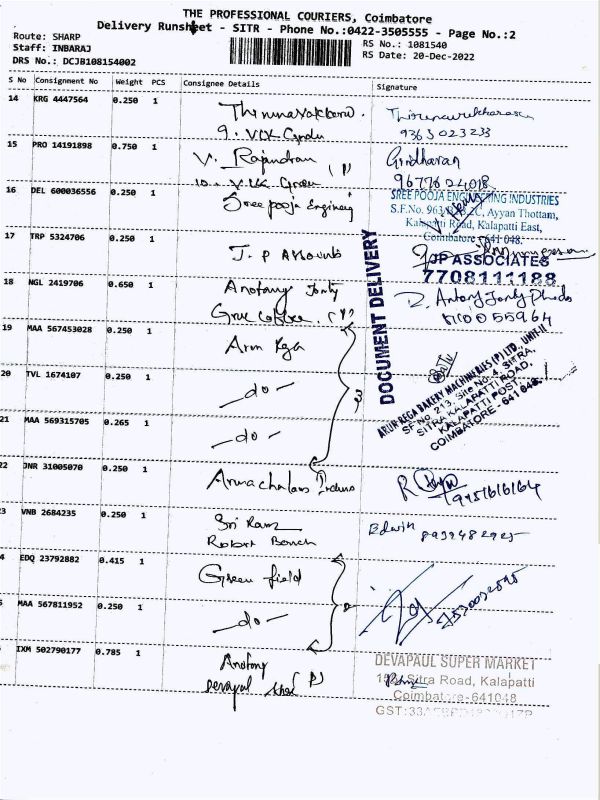 THE PROFESSIONAL COURIERS, Coimbatore
Delivery Runsheet - SITR - Phone No.:0422-3505555 - Page No.:2
Route: SHARP
Staff: INBARAJ
DRS No.: DCJB108154002
RS No.: 1081540
RS Date: 20-Dec-2022
S No Consignment No Weight PCS Consignee Details Signature
14 KRG 4447564 0.250 1
9. VIK Garden
9363023233
15 PRO 14191898 0.750 1 V. Rajendran (P)
10. VIK Green
Giridharan
9677624018
16 DEL 600036556 0.250 1 Sree pooja Enginering
SREE POOJA ENGINEERING INDUSTRIES
Ayyan Thottam,
Kalapatti Road, Kalapatti East,
Coimbatore - 641 048.
17 TRP 5324706 0.250 1 J. P Assounts
JP ASSOCIATES
7708111188
DOCUMENT DELIVERY
18 NGL 2419706 0.650 1 Antony Jonty
(P)
D. Antony Jonty
19 MAA 567453028 0.250 1 Arun Rga
20 TVL 1674107 0.250 1 -do-
21 MAA 569315705 0.265 1 -do-
3
ARUN REGA BAKERY MACHINERIES (P) LTD., UNIT-II
SF No. 213, Site No. 4, SITRA,
SITRA KALAPATTI ROAD,
KALAPATTI POST,
COIMBATORE - 641 048.
22 JNR 31005070 0.250 1 Arunachalam Indus
R
9951616164
23 VNB 2684235 0.250 1 Sri Ram
Robort Bench
Edwin
8939482925
4 EDQ 23792882 0.415 1 Green field
MAA 567811952 0.250 1 -do-
2
IXM 502790177 0.785 1 Antony
(P)
DEVAPAUL SUPER MARKET
Sitra Road, Kalapatti
Coimbatore-641048